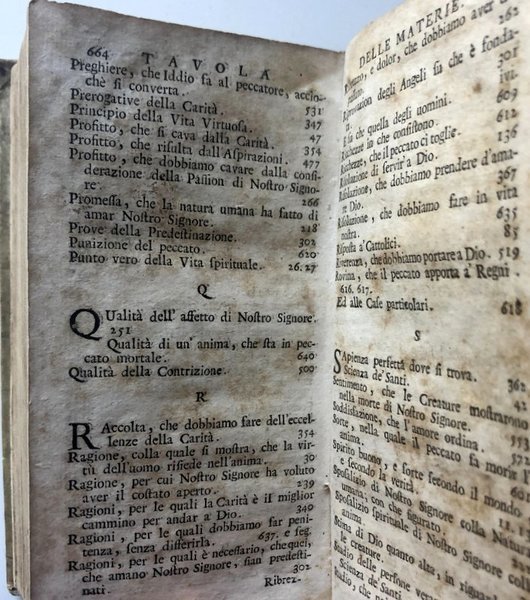 664 TAVOLA
Preghiere, che Iddio fa al peccatore, accio-
chè si converta. 531
Prerogative della Carità. 347
Principio della Vita Virtuosa. 47
Profitto, che si cava dalla Carità. 354
Profitto, che risulta dall'Aspirazioni. 477
Profitto, che dobbiamo cavare dalla consi-
derazione della Passion di Nostro Signo-
re. 266
Promessa, che la natura umana ha fatto di
amar Nostro Signore. 218
Prove della Predestinazione. 302
Punizione del peccato. 620
Punto vero della Vita spirituale. 26. 27
Q
QUalità dell'affetto di Nostro Signore.
251
Qualità di un'anima, che sta in pec-
cato mortale. 640
Qualità della Contrizione. 500
R
RAccolta, che dobbiamo fare dell'eccel-
lenze della Carità. 354
Ragione, colla quale si mostra, che la vir-
tù dell'uomo risiede nell'anima. 30
Ragione, per cui Nostro Signore ha voluto
aver il costato aperto. 239
Ragioni, per le quali la Carità è il miglior
cammino per andar a Dio. 340
Ragioni, per le quali dobbiamo far peni-
tenza, senza differirla. 637. e seg.
Ragioni, per le quali è necessario, che quei,
che amano Nostro Signore, sian predesti-
nati. 302
Ribrez-
DELLE MATERIE.
e dolor, che dobbiamo aver
262
degli Angeli fu che è fonda-
301
E su che quella degli uomini. ivi.
Ricchezze in che consistono. 609
Ricchezze, che il peccato ci toglie. 612
Risoluzione di servir a Dio. 136
Risoluzione, che dobbiamo prendere d'ama-
re Dio. 367
Risoluzione, che dobbiamo fare in vita
nostra. 635
Risposta a' Cattolici. 85
Riverenza, che dobbiamo portare a Dio. 519
Rovina, che il peccato apporta a' Regni
616. 617.
Ed alle Case particolari. 618
S
SApienza perfetta dove si trova. 362
Scienza de' Santi.
Sentimento, che le Creature mostrarono
nella morte di Nostro Signore.
Soddisfazione, che l'amore ordina. 522
Sorte, nella quale il peccato fa morire l'
anima.
Spirito buono, e forte secondo il mondo,
e secondo la verità.
Sposalizio di Nostro Signore colla Natura
umana, con che figurato.
Sposalizio spirituale di Nostro Signore col
anima.
Stima di Dio quanto alta, in riguardo
le creature.
Studio delle persone
Studio, che
Scienza de' Santi.